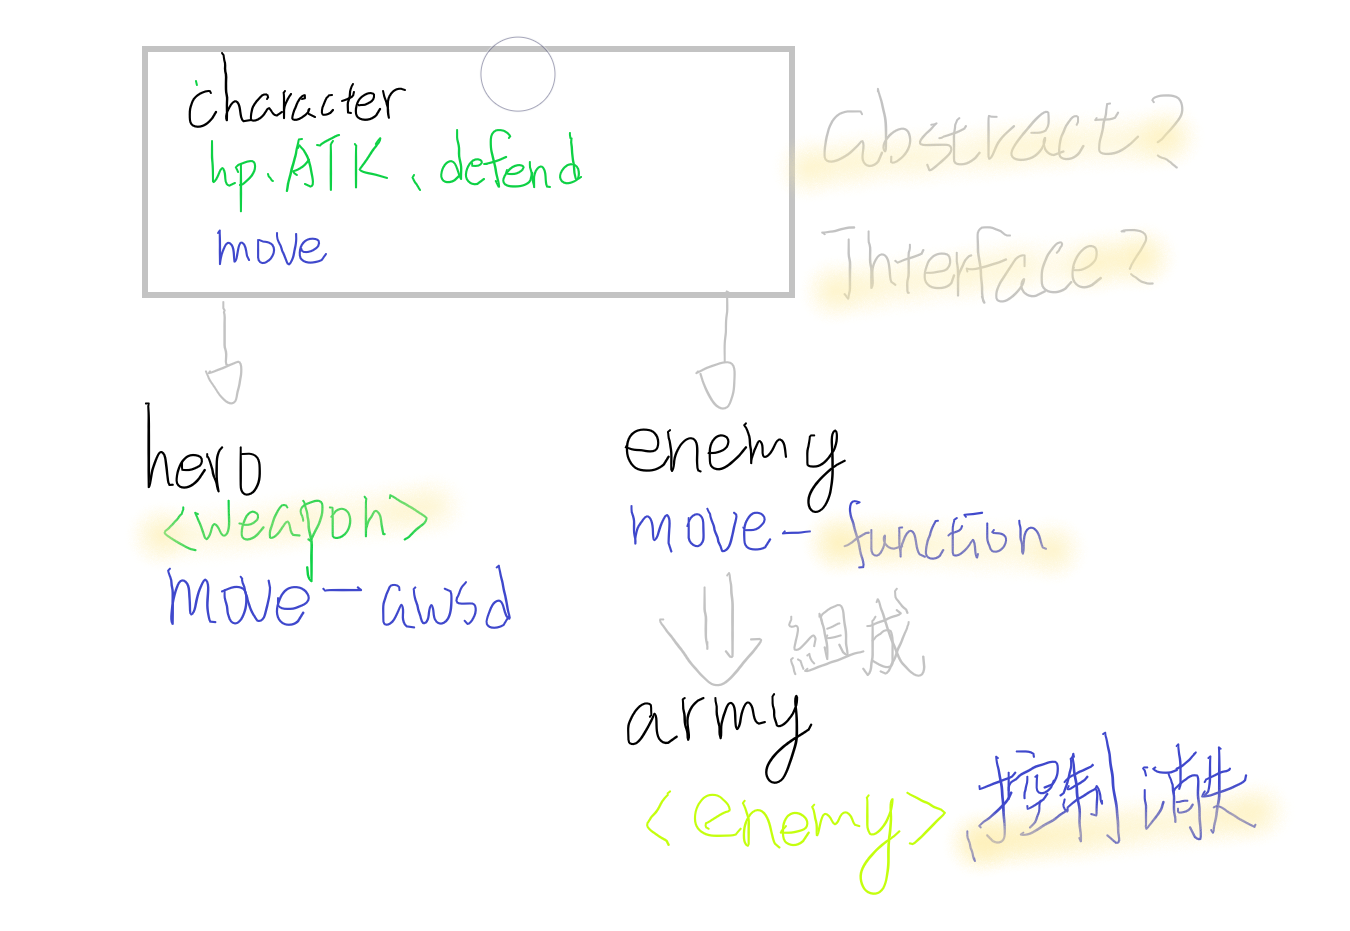 character
hp、ATK、defend
move
abstract?
Interface?
hero
<weapon>
move-awsd
enemy
move-function
組成
army
<enemy>
控制消失